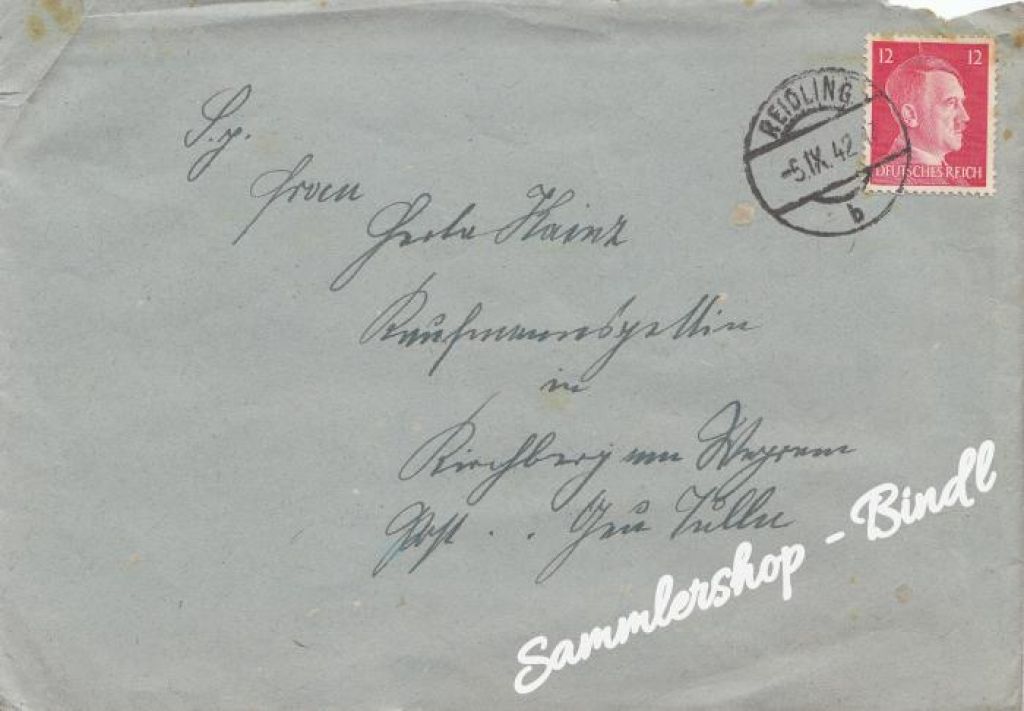 12 12
DEUTSCHES REICH
REIDLING
-5.IX.42
b
S. g.
Frau
Herta Kainz
Kaufmannsgattin
in
Kirchberg am Wagram
Post . . Gau Tulln
Sammlershop - Bindl